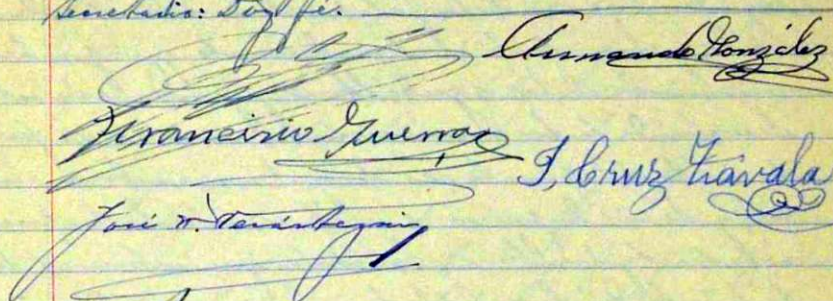 Secretario: Doy fé.
Armando González
Francisco Guerra
J. Cruz Zavala
José